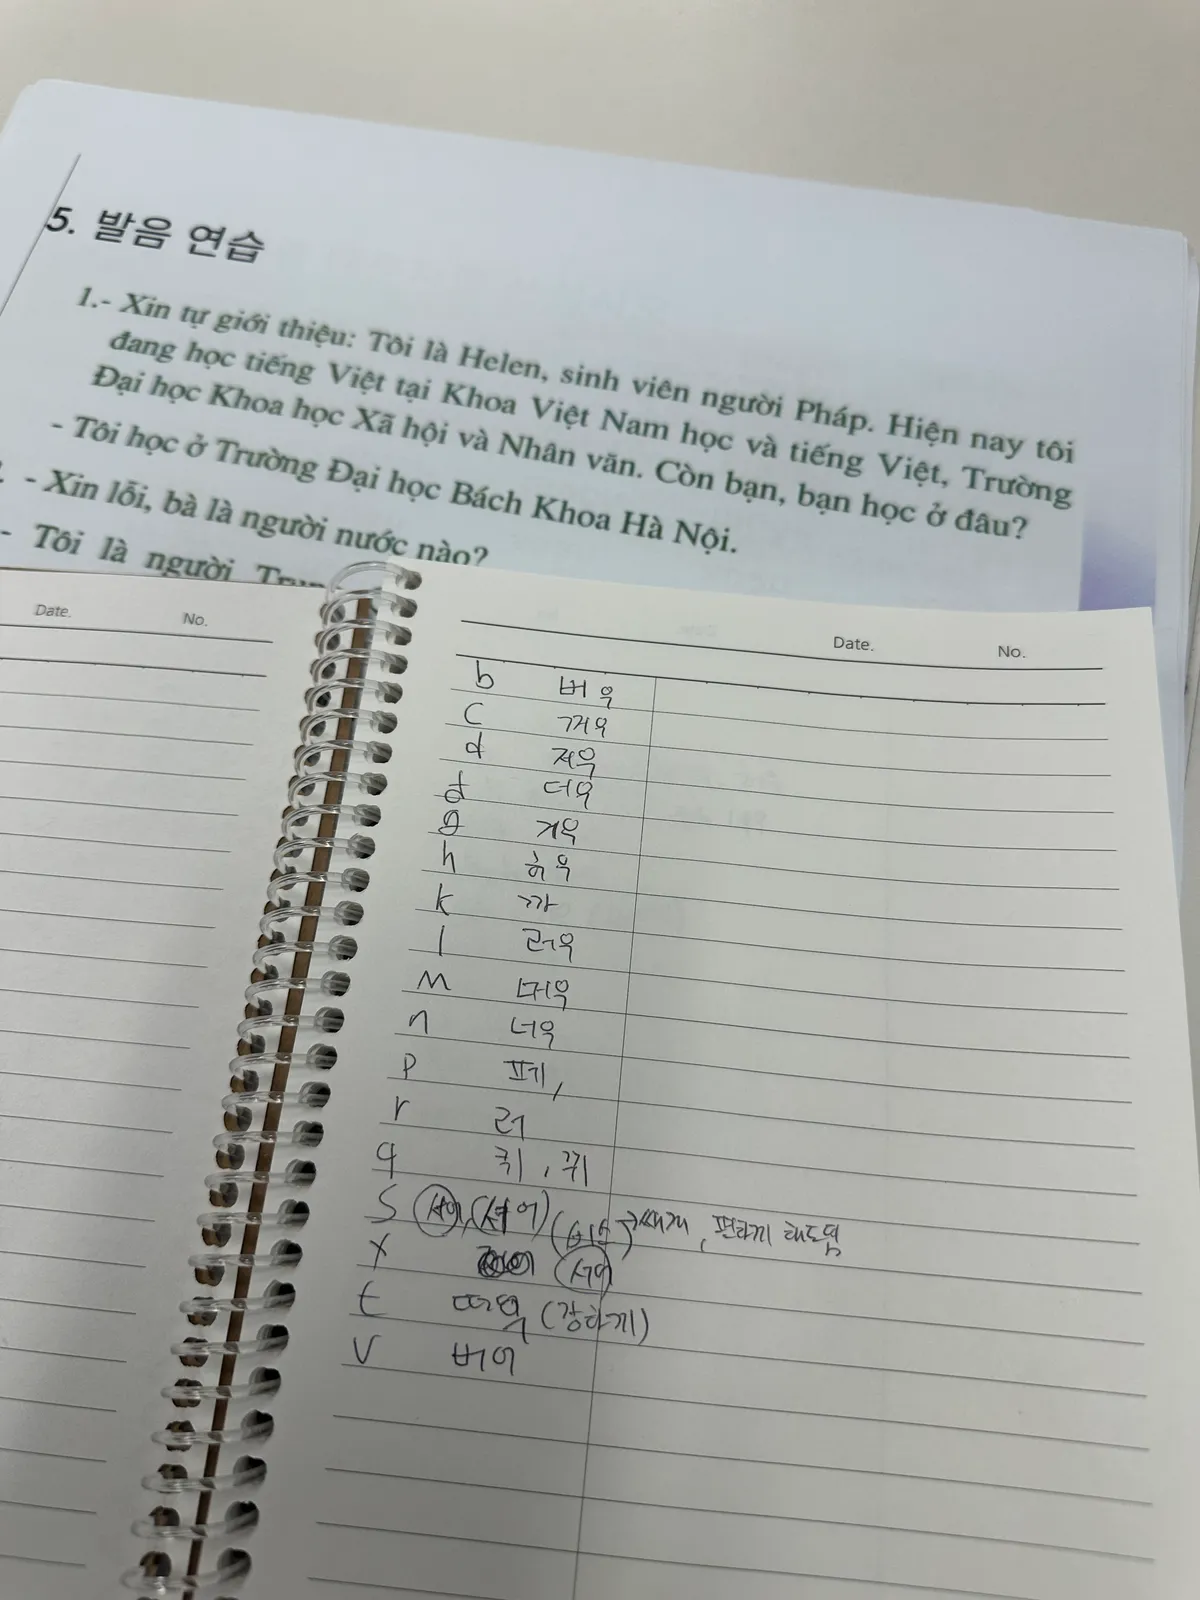 5. 발음 연습
1.- Xin tự giới thiệu: Tôi là Helen, sinh viên người Pháp. Hiện nay tôi
đang học tiếng Việt tại Khoa Việt Nam học và tiếng Việt, Trường
Đại học Khoa học Xã hội và Nhân văn. Còn bạn, bạn học ở đâu?
- Tôi học ở Trường Đại học Bách Khoa Hà Nội.
- Xin lỗi, bà là người nước nào?
- Tôi là người
Date. No.
Date. No.
b 버우
c 꺼우
d 저우
đ 더우
g 거우
h 허우
k 까
l 러우
m 머우
n 너우
p 페,
r 러
q 퀴, 뀌
s 편하게 해도됨
x 서어
t 떠우 (강하게)
v 버어